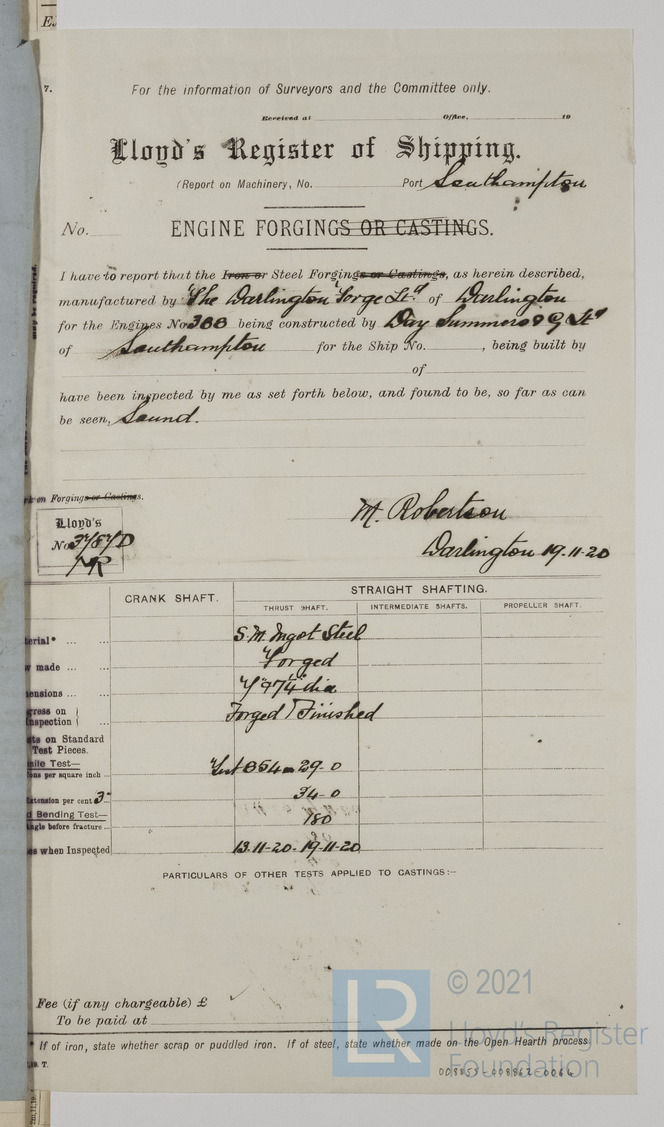 E.
7.
For the information of Surveyors and the Committee only.
Received at Office, 19
Lloyd's Register of Shipping.
(Report on Machinery, No. Port Southampton
No. ENGINE FORGINGS OR CASTINGS.
I have to report that the Iron or Steel Forgings or Castings, as herein described,
manufactured by The Darlington Forge Ltd of Darlington
for the Engines No 388 being constructed by Day Summers & Ltd
of Southampton for the Ship No. , being built by
of
have been inspected by me as set forth below, and found to be, so far as can
be seen, Sound.
may be required.
on Forgings or Castings.
Lloyd's
No
MR
M. Robertson
Darlington 19.11.20
CRANK SHAFT. STRAIGHT SHAFTING.
THRUST SHAFT. INTERMEDIATE SHAFTS. PROPELLER SHAFT.
erial* ... ... S.M. Ingot Steel
made ... Forged
ensions ... ... dia
gress on
nspection Forged & Finished
ts on Standard
Test Pieces.
sile Test—
ons per square inch ... 29-0
Extension per cent 3" 34-0
d Bending Test—
ngle before fracture ... 180
es when Inspected 13.11-20-19.11-20
PARTICULARS OF OTHER TESTS APPLIED TO CASTINGS:—
Fee (if any chargeable) £
To be paid at
* If of iron, state whether scrap or puddled iron. If of steel, state whether made on the Open Hearth process
T.
LR
© 2021
Lloyd's Register
Foundation
008859-008862-0064